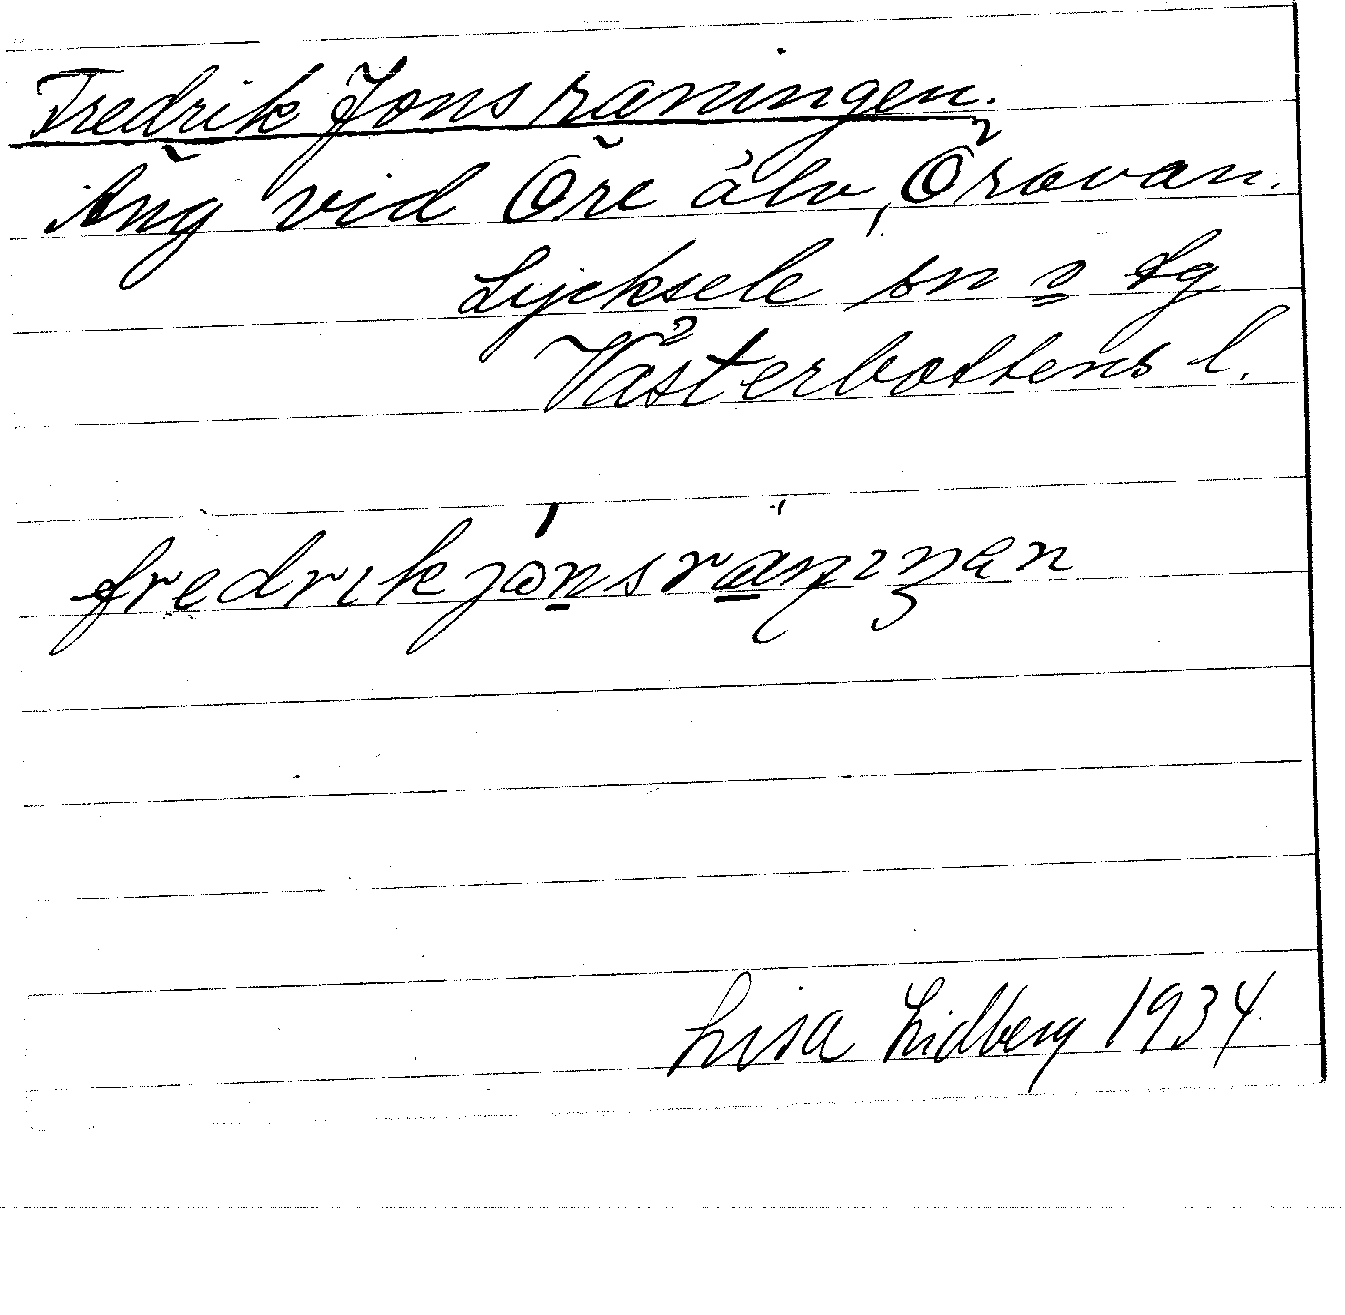 Fredrik Jonsraningen.
Äng vid Öre älv, Öravan.
Lycksele sn o. lg
Västerbottens l.
fredrikjonsraniŋən
Lisa Lidberg 1934